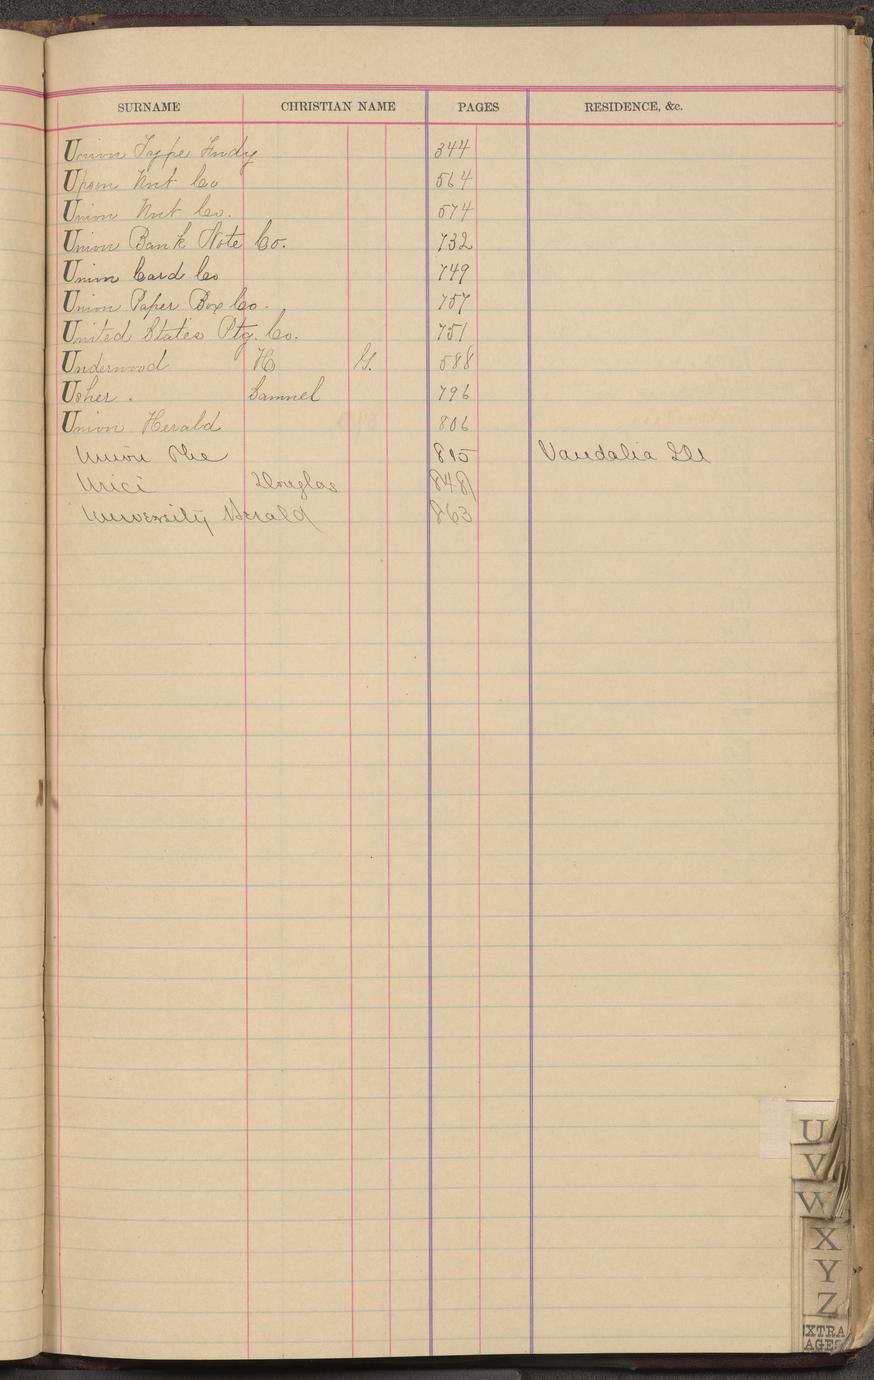 SURNAME CHRISTIAN NAME PAGES RESIDENCE, &c.
Union Type Fndy 344
Upson Nut Co 564
Union Nut Co. 574
Union Bank Note Co. 732
Union Card Co 749
Union Paper Box Co. 757
United States Ptg. Co. 751
Underwood H G. 588
Usher. Samuel 796
Union Herald 806
Union The 815 Vandalia Ill
Urici Douglas 848
University Herald 863
U
V
W
X
Y
Z
EXTRA
AGES